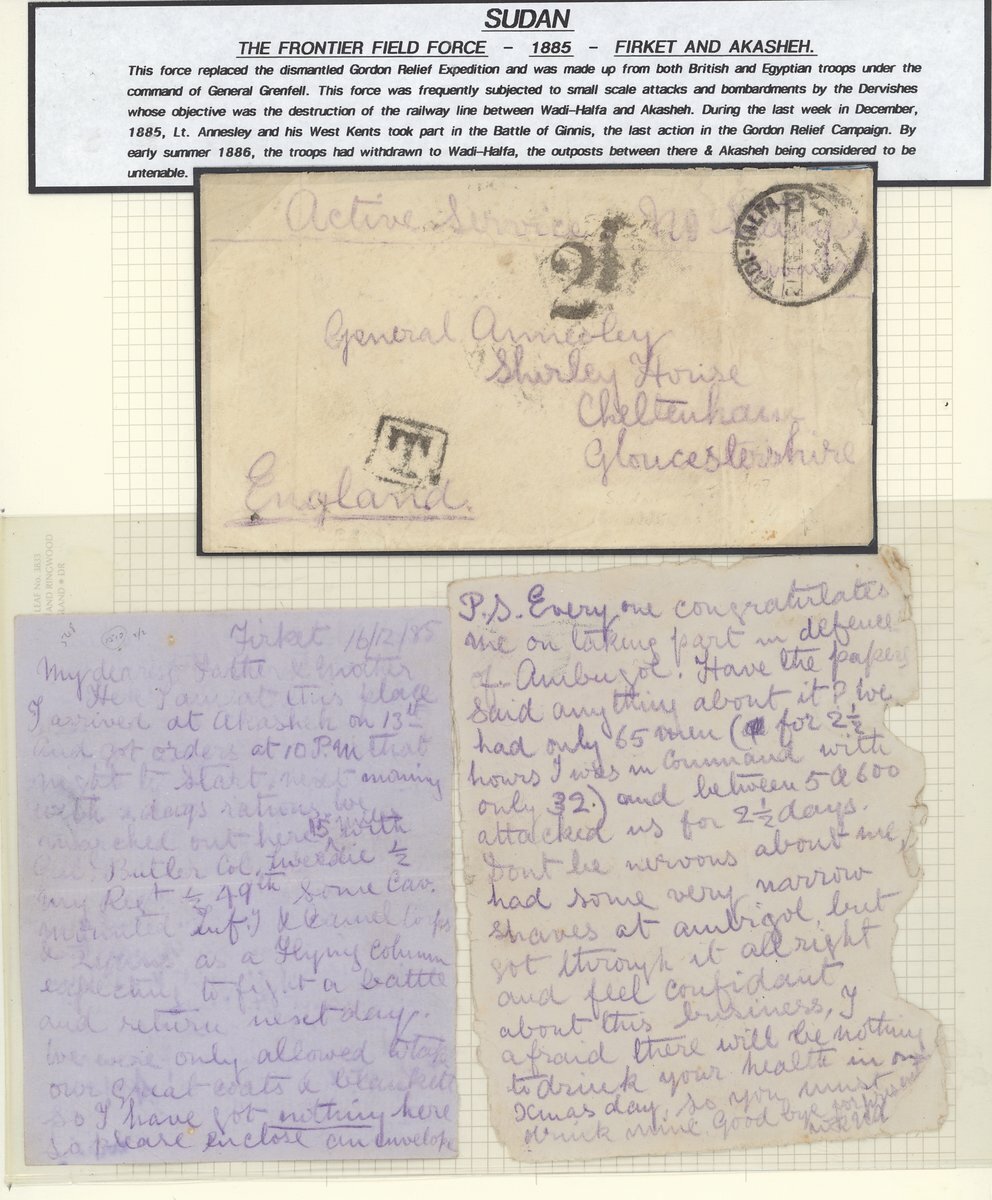 SUDAN
THE FRONTIER FIELD FORCE - 1885 - FIRKET AND AKASHEH.
This force replaced the dismantled Gordon Relief Expedition and was made up from both British and Egyptian troops under the
command of General Grenfell. This force was frequently subjected to small scale attacks and bombardments by the Dervishes
whose objective was the destruction of the railway line between Wadi-Halfa and Akasheh. During the last week in December,
1885, Lt. Annesley and his West Kents took part in the Battle of Ginnis, the last action in the Gordon Relief Campaign. By
early summer 1886, the troops had withdrawn to Wadi-Halfa, the outposts between there & Akasheh being considered to be
untenable.
Active Service No
WADI-HALFA
2
General Annesley
Shirley House
Cheltenham
Gloucestershire
T
England.
LEAF No. 3833
AND RINGWOOD
LAND * DR
Firket 16/12/85
My dearest Father & Mother
Here I am at this place
I arrived at Akasheh on 13th
and got orders at 10 P.m that
night to start next morning
with 2 days rations we
marched out here 15 with
Butler Col. Tweedie ½
my Regt ½ 49th Some Cav.
mounted Inf.y & Camel Corps
& 2 guns as a Flying Column
expecting to fight a battle
and return next day.
we were only allowed to take
our great coats & blankets
so I have got nothing here
so please enclose an envelope
P.S. Every one congratulates
me on taking part in defence
of Ambugol. Have the papers
said anything about it? we
had only 65 men (for 2½
hours I was in Command with
only 32.) and between 5 & 600
attacked us for 2½ days.
Dont be nervous about me,
had some very narrow
shaves at ambigol, but
got through it all right
and feel confidant
about this business, I
afraid there will be nothing
to drink your health in on
Xmas day, so you must
drink mine Good bye